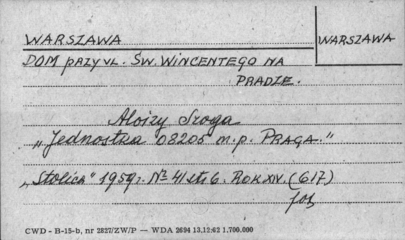 WARSZAWA
WARSZAWA
DOM PRZY UL. ŚW. WINCENTEGO NA
PRADZE.
Aloizy Sroga
"Jednostka 08205 m.p. PRAGA."
"Stolica" 1959r. Nr 41 str. 6. ROK XIV. (617)
fot.
CWD - B-15-b, nr 2827/ZW/P — WDA 2694 13.12.62 1.700.000